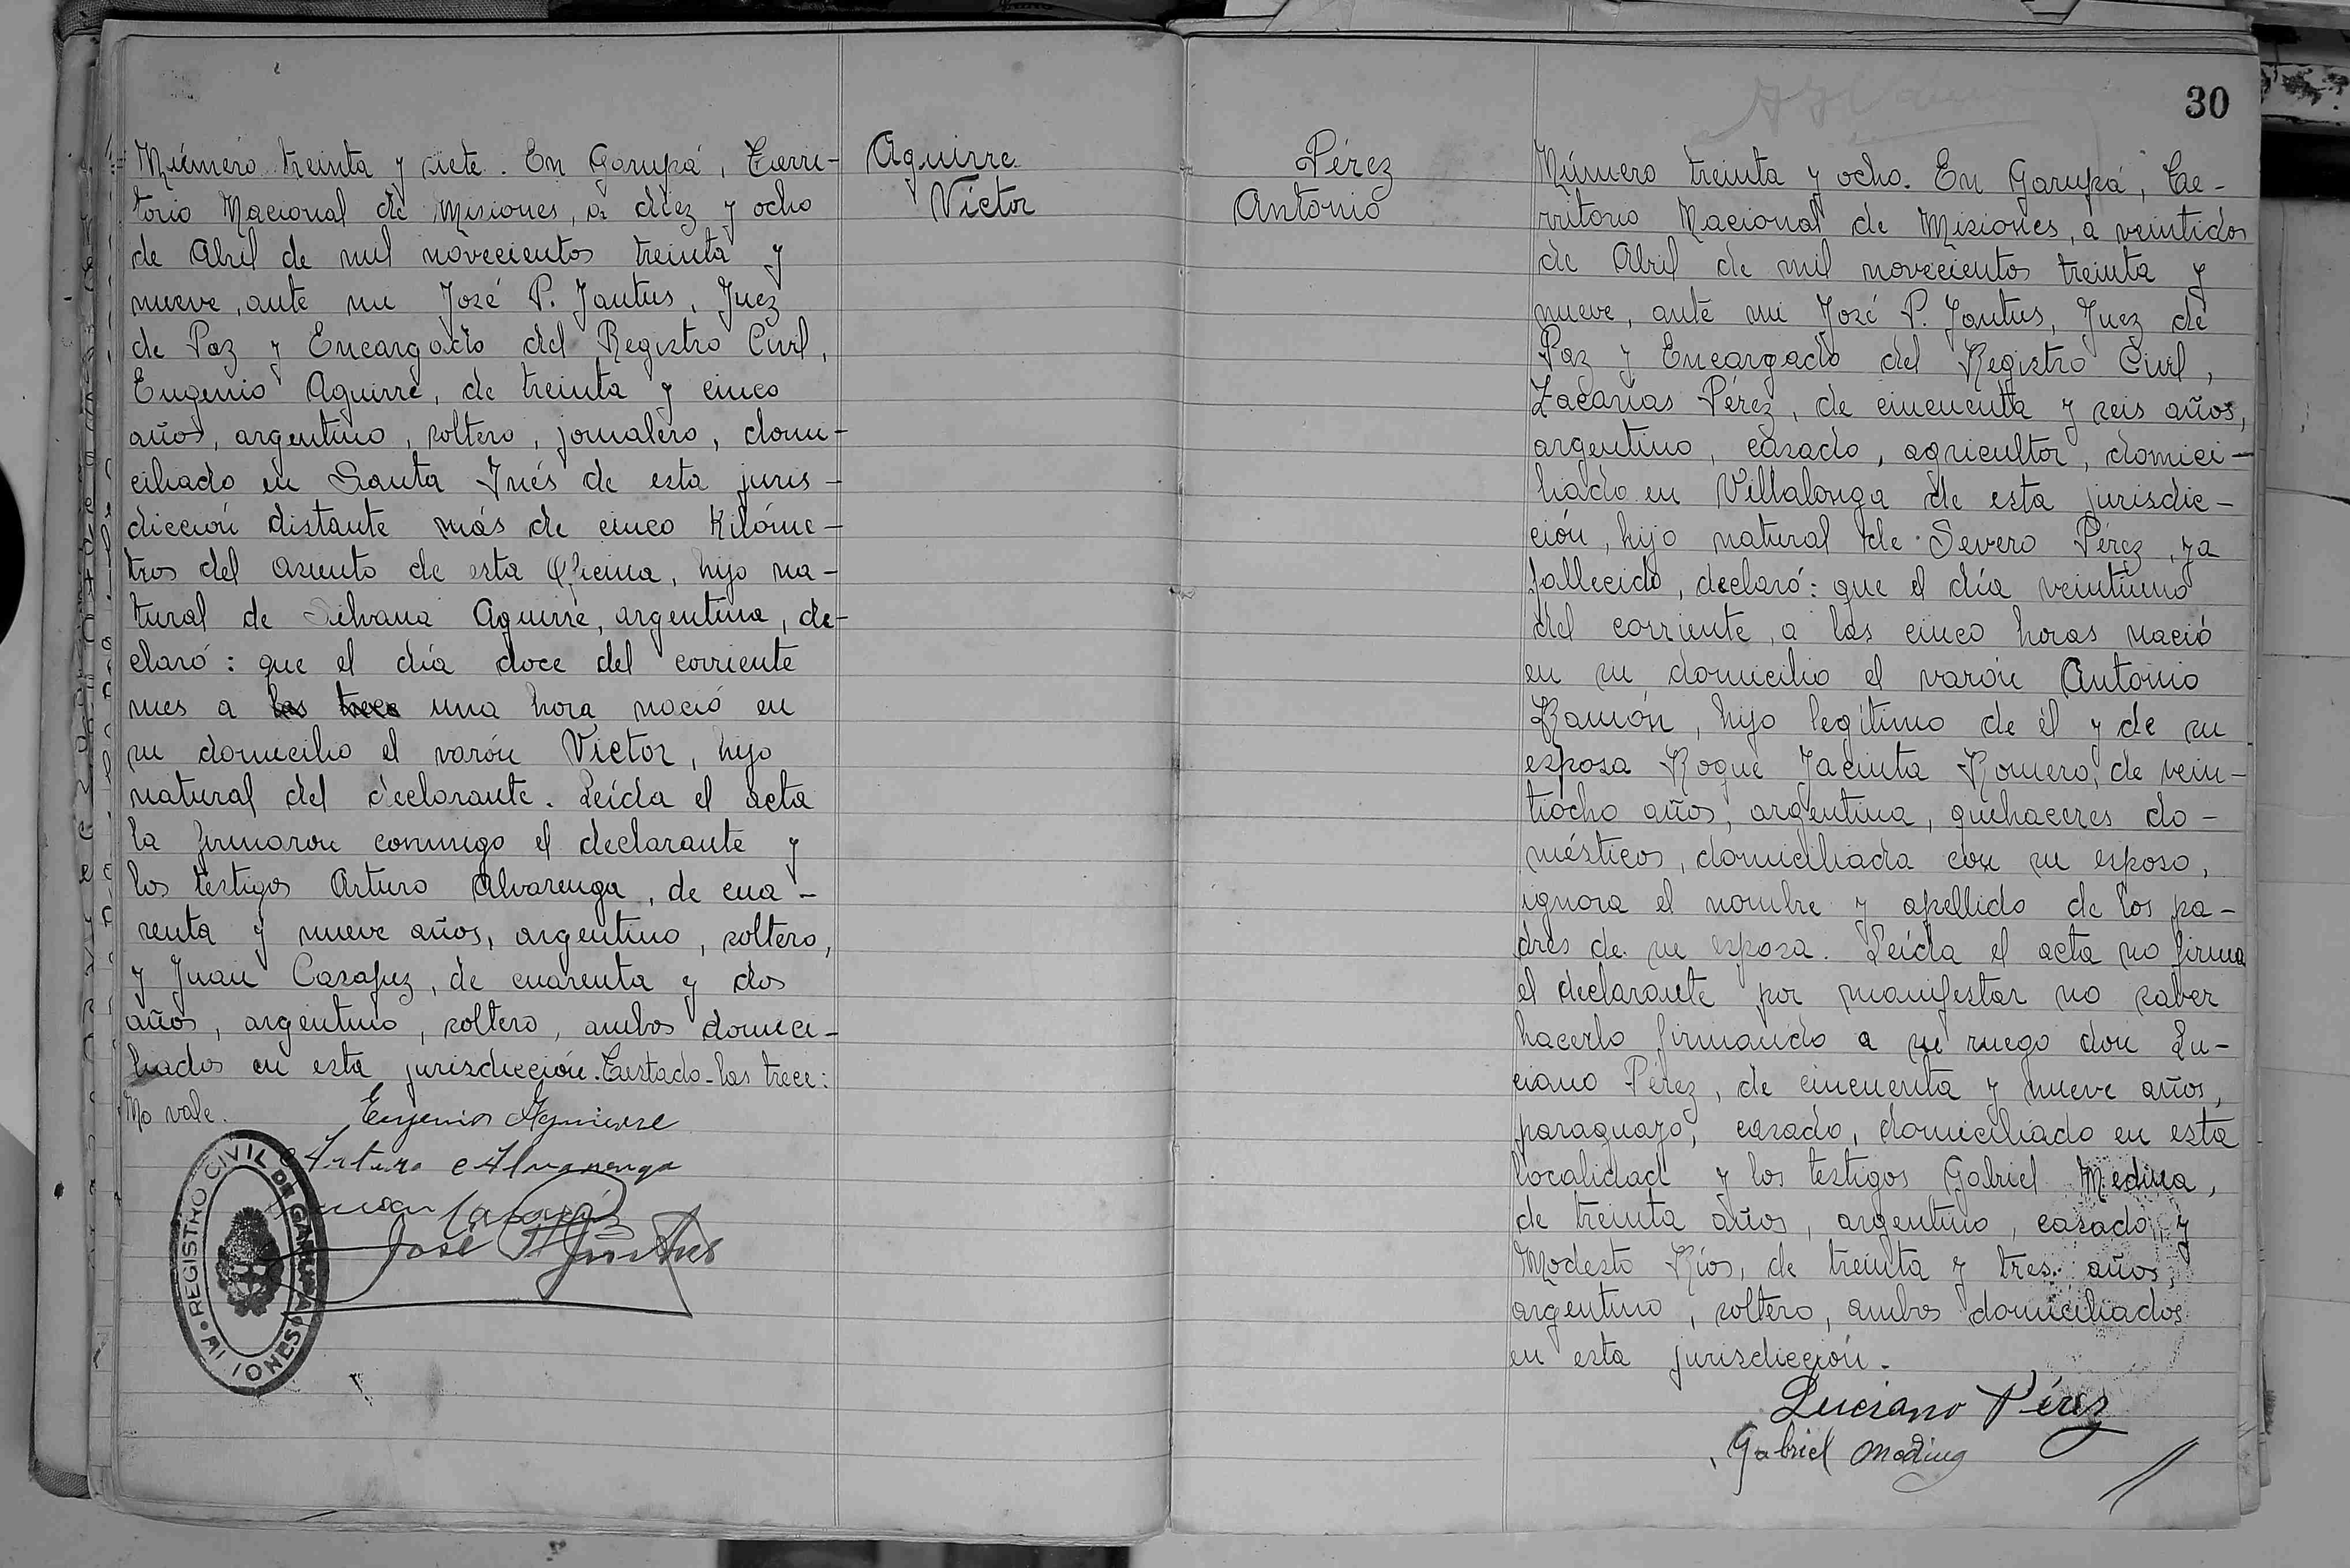 Número treinta y siete. En Garupá, Terri-
torio Nacional de Misiones, a diez y ocho
de Abril de mil novecientos treinta y
nueve, ante mi José P. Jantus, Juez
de Paz y Encargado del Registro Civil,
Eugenio Aguirre, de treinta y cinco
años, argentino, soltero, jornalero, domi-
ciliado en Santa Inés de esta juris-
dicción distante más de cinco kilóme-
tros del asiento de esta Oficina, hijo na-
tural de Silvana Aguirre, argentina, de-
claró: que el día doce del corriente
mes a las trece una hora nació en
su domicilio el varón Victor, hijo
natural del declarante. Leída el acta
la firmaron conmigo el declarante y
los testigos Arturo Alvarenga, de cua-
renta y nueve años, argentino, soltero,
y Juan Casafuz, de cuarenta y dos
años, argentino, soltero, ambos domici-
liados en esta jurisdicción. Testado-las trece:
No vale.
Eugenio Aguirre
Arturo Alvarenga
Juan
José P. Jantus
REGISTRO CIVIL DE GARUPA
MI IONES
Aguirre
Victor
Pérez
Antonio
30
Número treinta y ocho. En Garupá, Te-
rritorio Nacional de Misiones, a veintidos
de Abril de mil novecientos treinta y
nueve, ante mi José P. Jantus, Juez de
Paz y Encargado del Registro Civil,
Zacarías Pérez, de cincuenta y seis años,
argentino, casado, agricultor, domici-
liado en Villalonga de esta jurisdic-
ción, hijo natural de Severo Pérez, ya
fallecido, declaró: que el día veintiuno
del corriente, a las cinco horas nació
en su domicilio el varón Antonio
Ramón, hijo legítimo de él y de su
esposa Roque Jacinta Romero, de vein-
tiocho años, argentina, quehaceres do-
mésticos, domiciliada con su esposo,
ignora el nombre y apellido de los pa-
dres de su esposa. Leída el acta no firma
el declarante por manifestar no saber
hacerlo firmando a su ruego don Lu-
ciano Pérez, de cincuenta y nueve años,
paraguayo, casado, domiciliado en esta
localidad y los testigos Gabriel Medina,
de treinta años, argentino, casado, y
Modesto Ríos, de treinta y tres años,
argentino, soltero, ambos domiciliados
en esta jurisdicción.
Luciano Pérez
Gabriel Medina